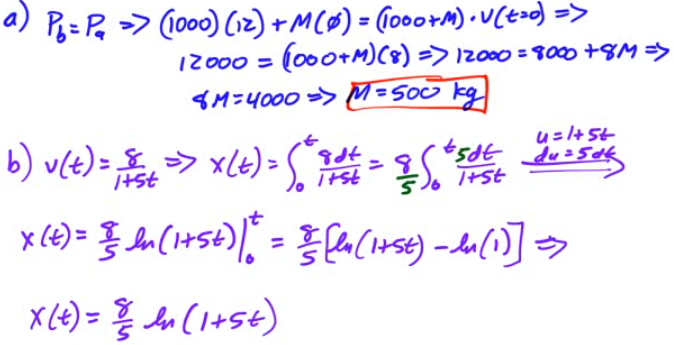 a) P_b = P_a => (1000)(12) + M(∅) = (1000+M)·v(t=0) =>
12000 = (1000+M)(8) => 12000 = 8000 + 8M =>
8M = 4000 => M = 500 kg
b) v(t) = 8/(1+5t) => x(t) = ∫₀ᵗ 8dt/(1+5t) = 8/5 ∫₀ᵗ 5dt/(1+5t) u = 1+5t du = 5dt
x(t) = 8/5 ln(1+5t)|₀ᵗ = 8/5 [ln(1+5t) - ln(1)] =>
x(t) = 8/5 ln(1+5t)